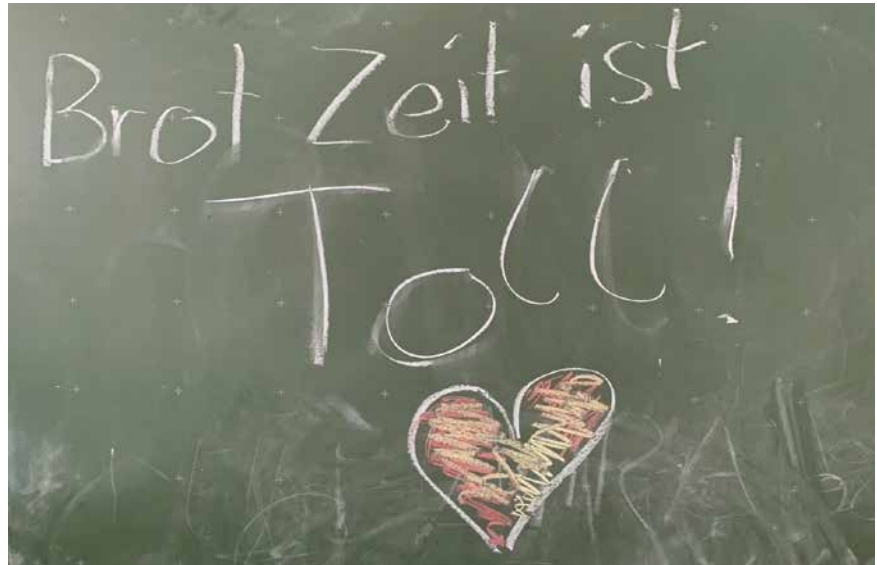 Brot Zeit ist
Toll!